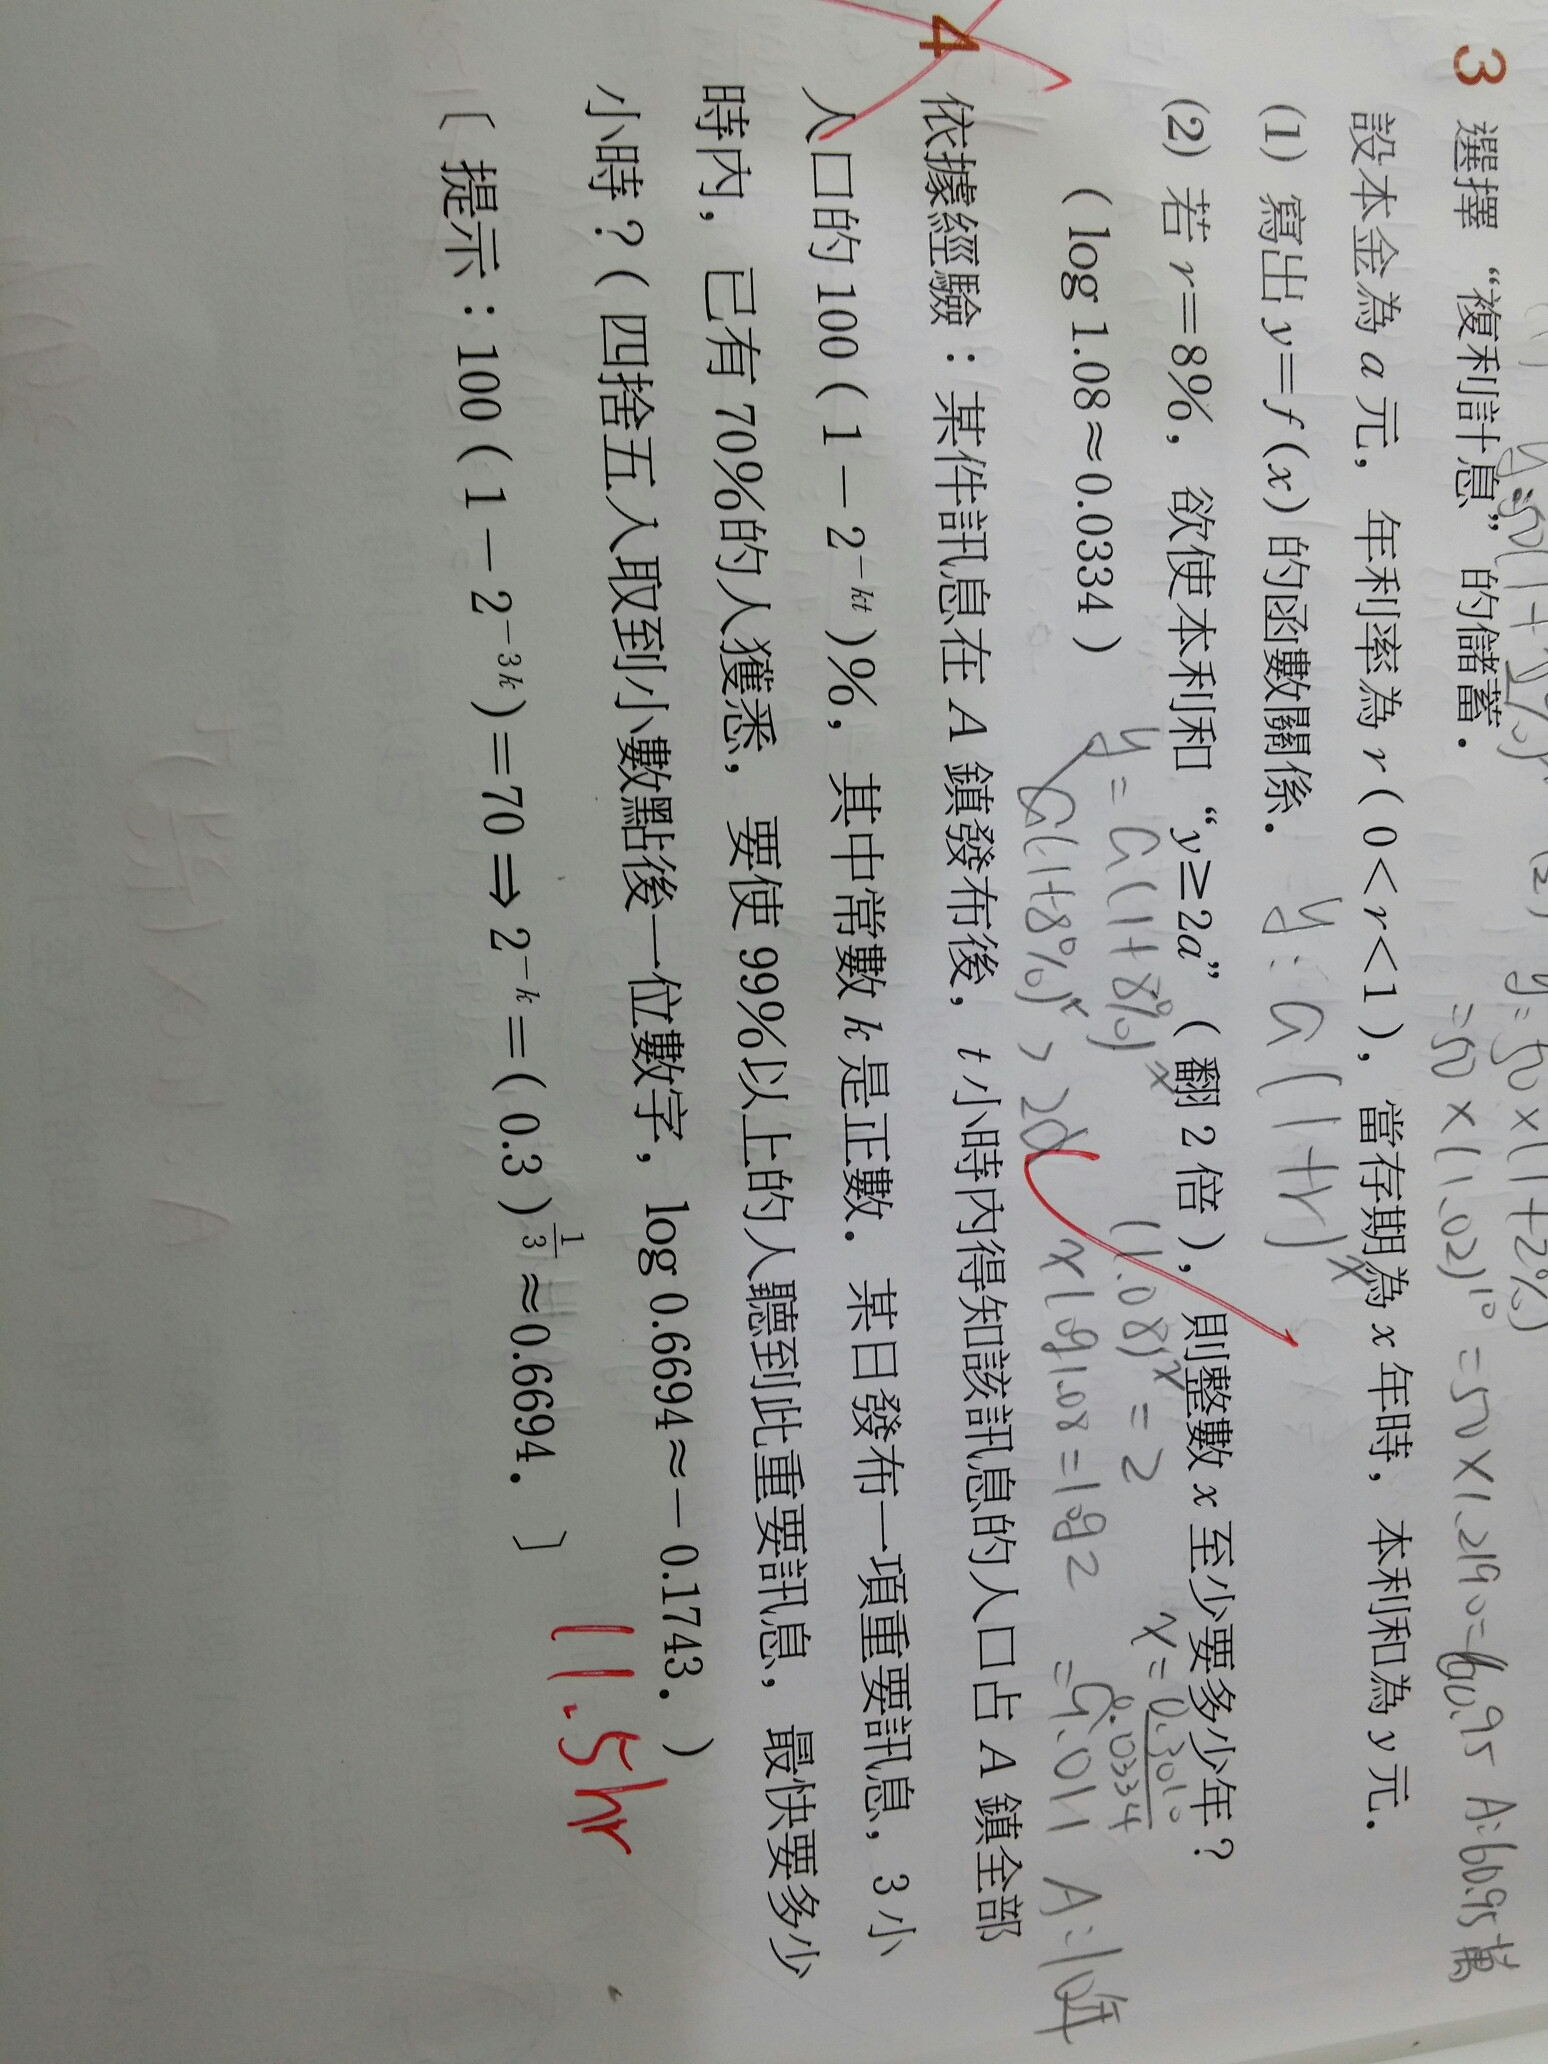 y=50(1+
(2) y=50×(1+2%)
=50×(1.02)¹⁰=50×1.2190=60.95 A:60.95萬
3 選擇“複利計息”的儲蓄.
設本金為 a 元, 年利率為 r (0<r<1), 當存期為 x 年時, 本利和為 y 元.
(1) 寫出 y=f(x) 的函數關係. y=a(1+r)ˣ
(2) 若 r=8%, 欲使本利和“y≥2a”(翻 2 倍), 則整數 x 至少要多少年?
(log 1.08≈0.0334)
y=a(1+8%)ˣ (1.08)ˣ=2 x=0.3010/0.0334
a(1+8%)ˣ>2a xlog1.08=log2 =9.011 A:10年
4 依據經驗:某件訊息在 A 鎮發布後, t 小時內得知該訊息的人口占 A 鎮全部
人口的 100(1-2⁻ᵏᵗ)%, 其中常數 k 是正數. 某日發布一項重要訊息, 3 小
時內, 已有 70%的人獲悉, 要使 99%以上的人聽到此重要訊息, 最快要多少
小時?(四捨五入取到小數點後一位數字, log 0.6694≈-0.1743.)
〔提示:100(1-2⁻³ᵏ)=70⇒2⁻ᵏ=(0.3)^(1/3)≈0.6694.〕
11.5hr